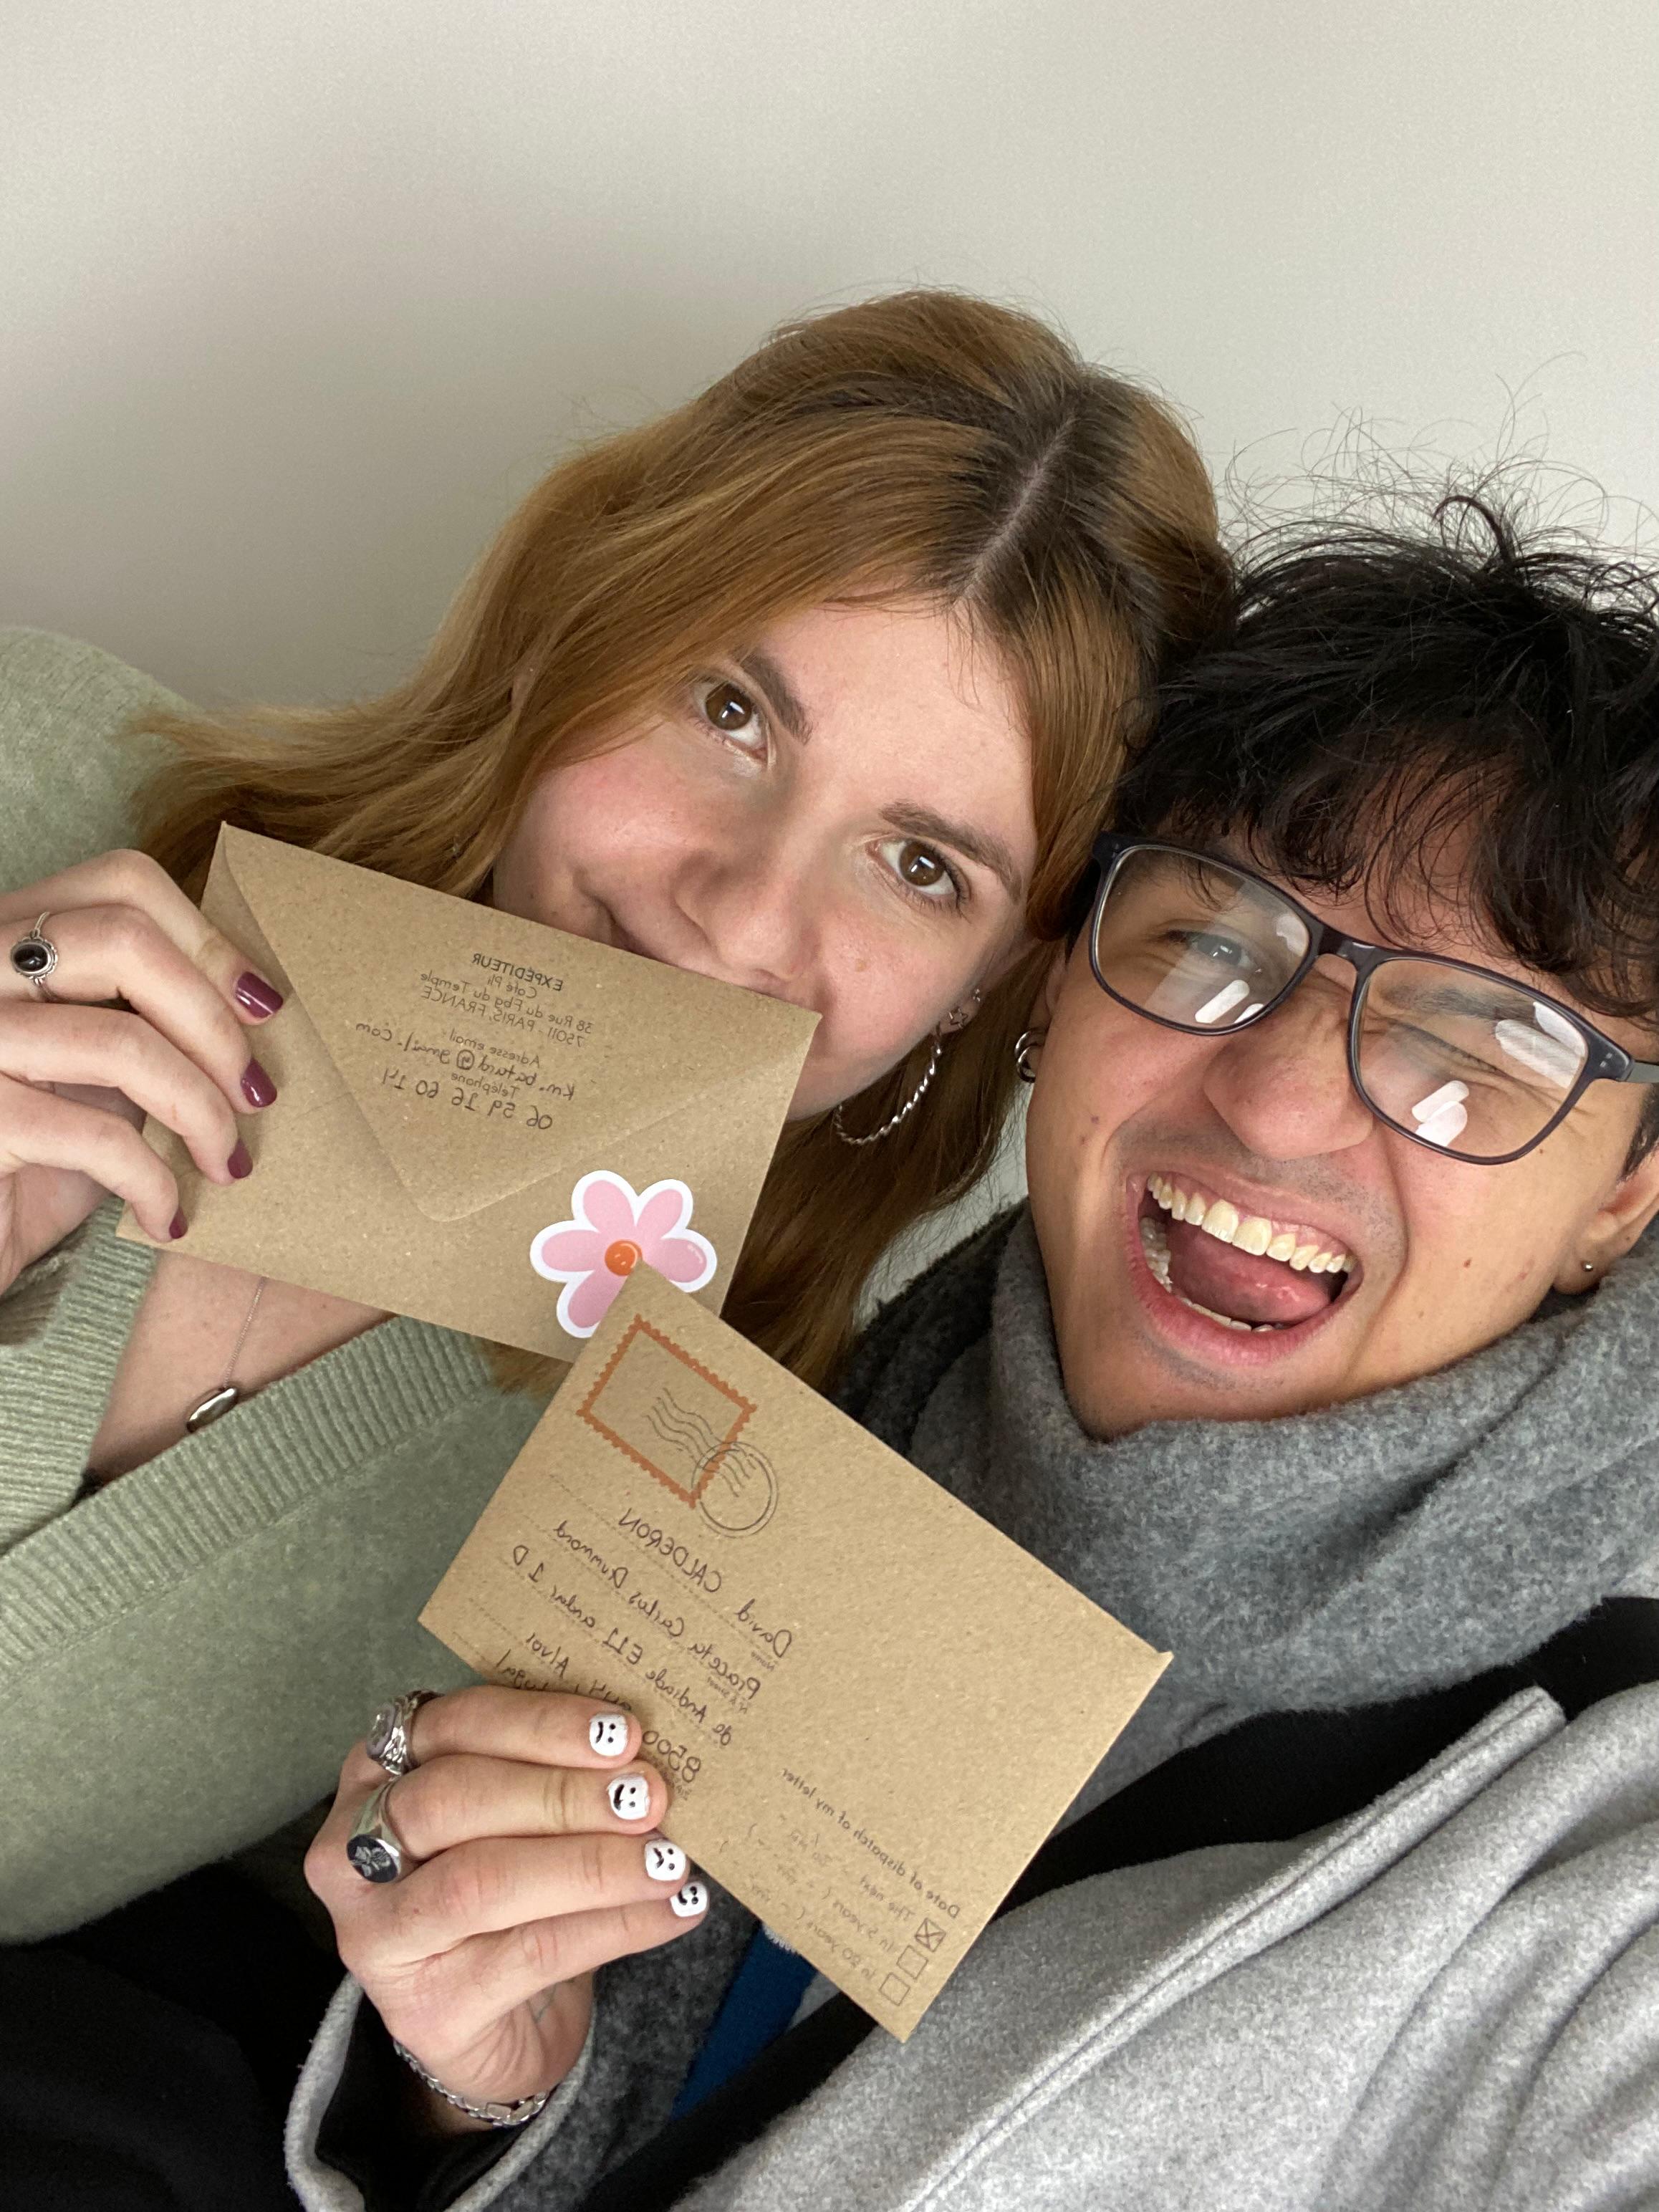 EXPÉDITEUR
Café Pli
38 Rue du Fbg du Temple
75011, PARIS, FRANCE
Adresse email
@gmail.com
Téléphone
06 59 16 60 14
David CALDERON
Name
Praceta Carlos Drummond
N° & Street
de Andrade E11 andar 1 D
8500
Alvor
Date of dispatch of my letter
The next
In 5 years (
In 20 years (